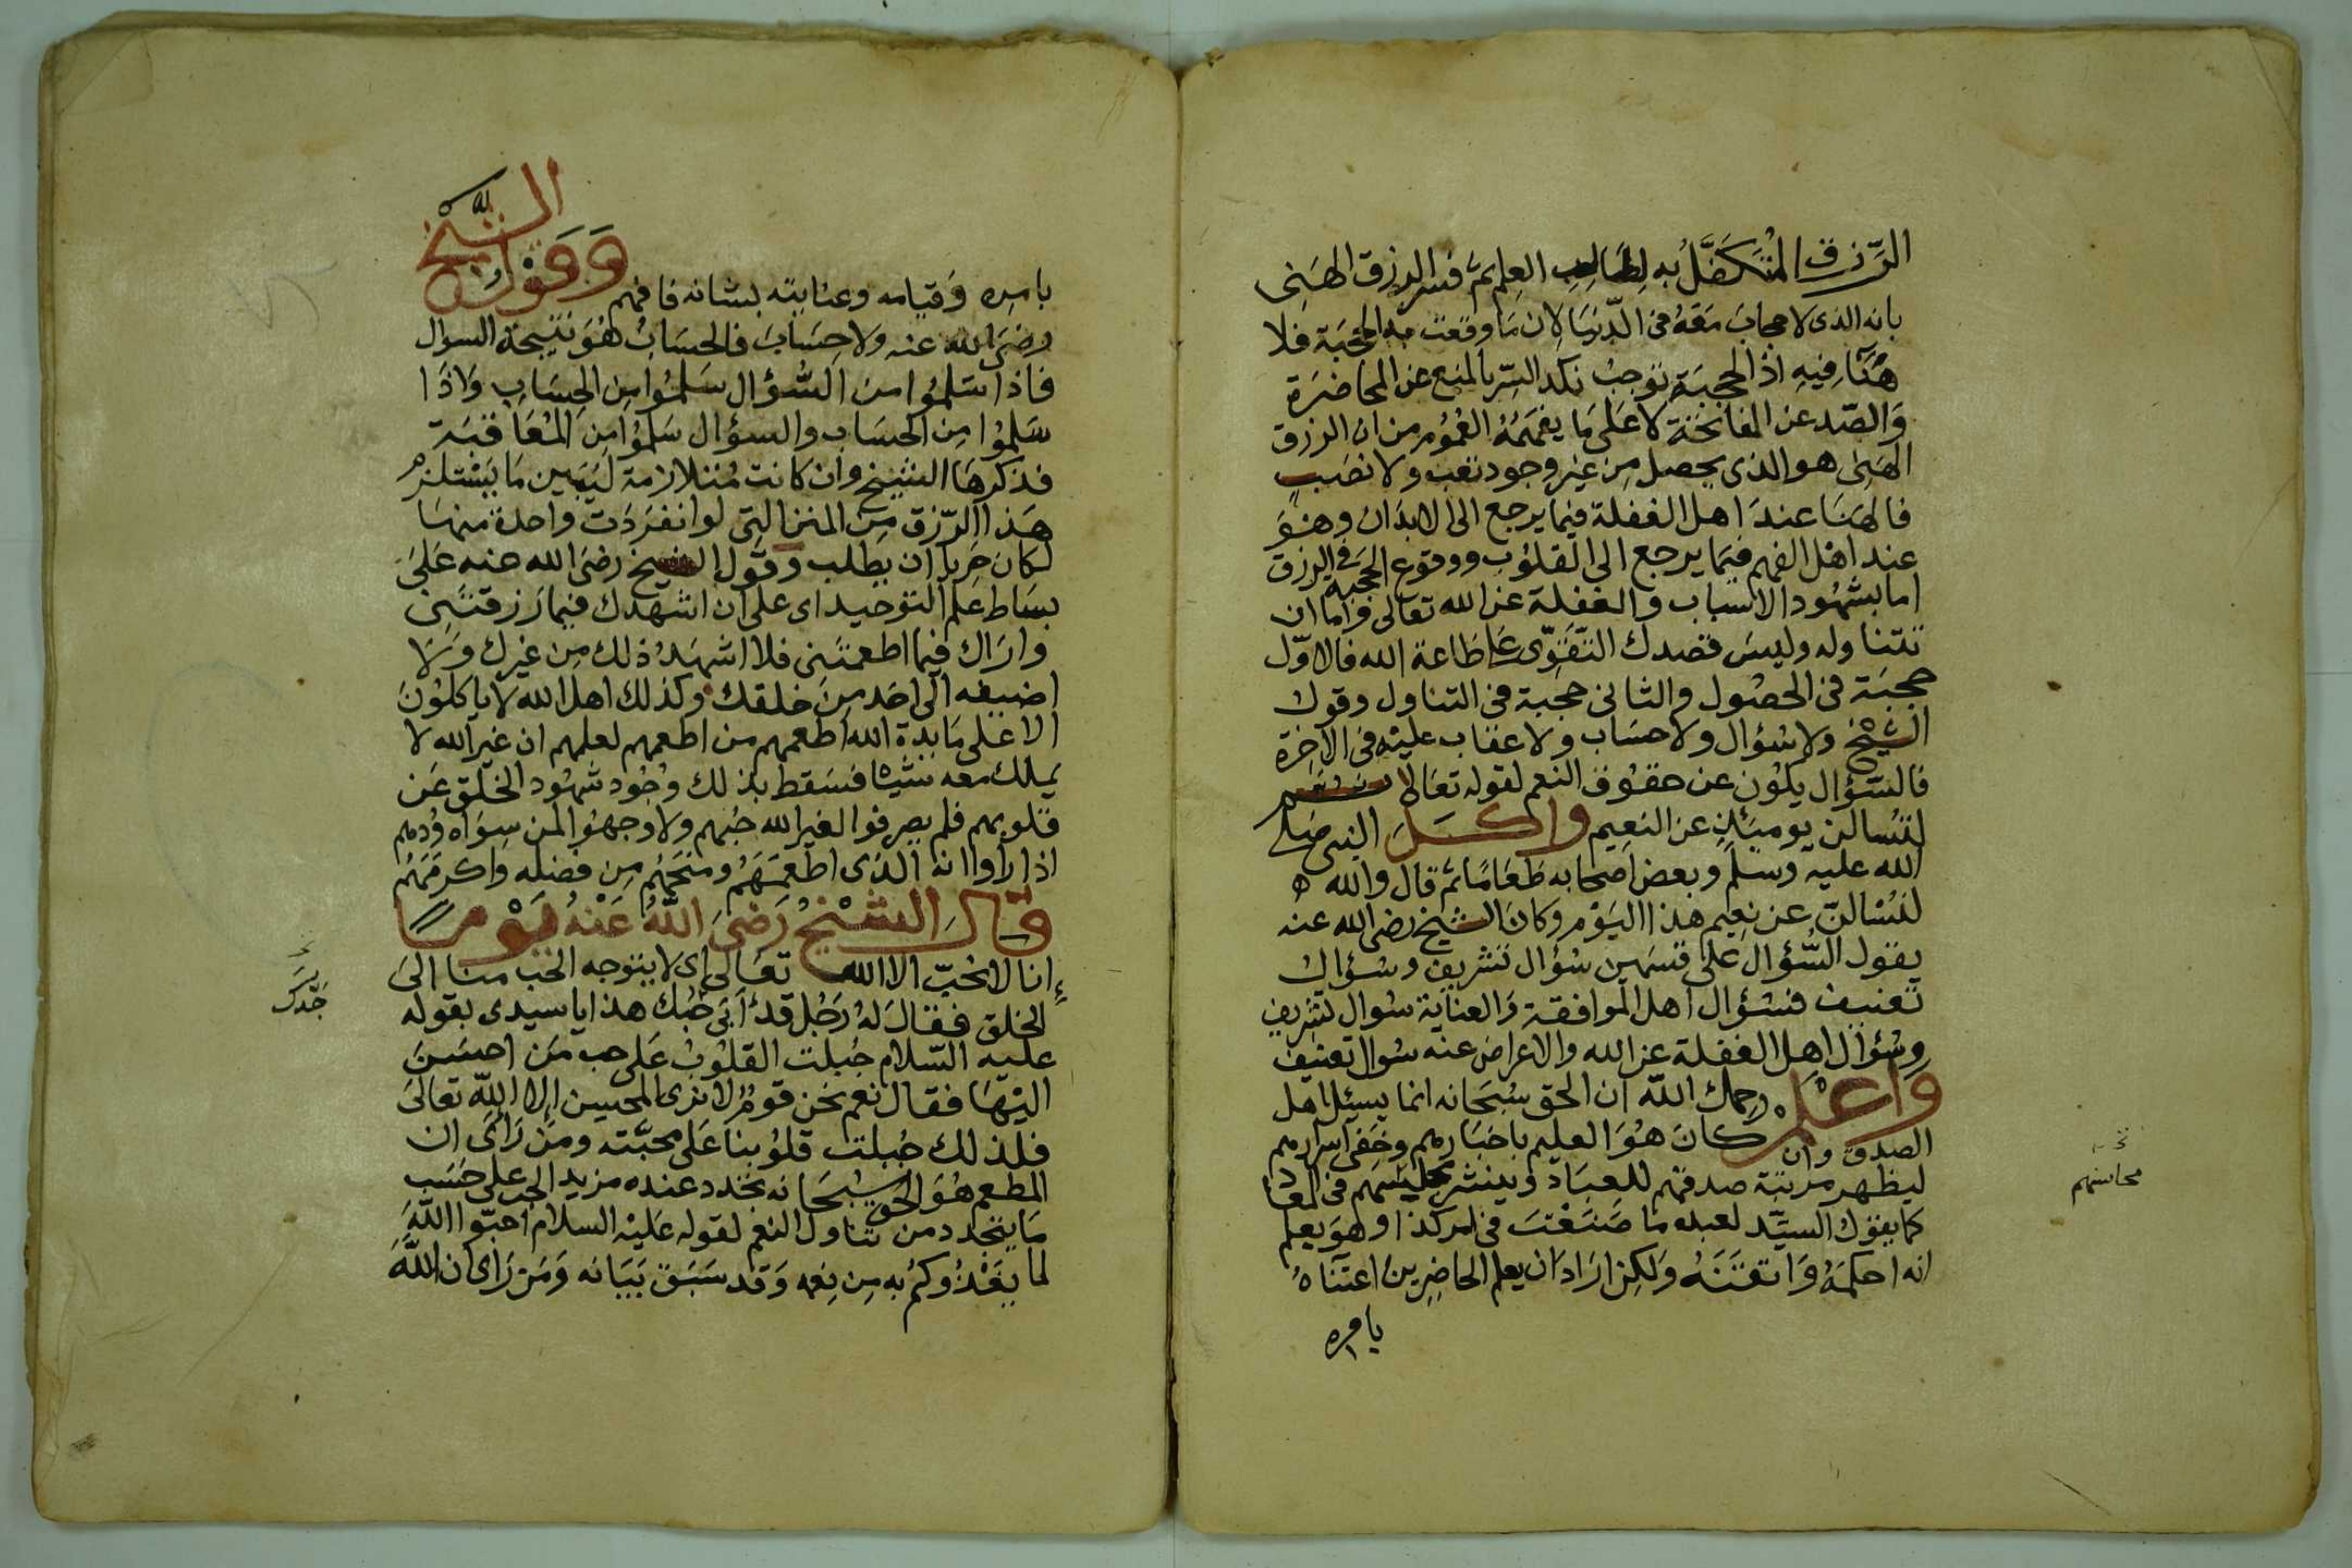 الرّزق المُتَكَفَّلُ به لِطَالِبِ العِلم ثم فسر الرزق الهَنى
بانه الذى لا حجابَ مَعَهُ فى الدّنيَا لِان مَا وقعَت به الحُجبَة فلا
هَنَآ فِيهِ اذ الحجبَة توجبُ نكد السِّر بالمنع عن المحاضَرَة
وَالصّد عن المفاتحَة لا عَلى مَا يفهَمُهُ العُمُوم من ان الرزق
الهَنى هو الذى يحصل مِن غير وجود تعَب ولا نصَبٍ
فالهَنَا عندَ اهل الغفلة فيما يرجع الى الابدَان وهُوَ
عند اهْل الفهم فيمَا يرجع الى القلوُب ووقوع الحجبَة فى الرزق
اما بشهُود الاسباب والغفلَة عن الله تعَالى وَاما ان
تتناوله وليسَ قصدك التّقَوّى عَلى طَاعة الله فالاوّل
حجبَة فى الحصُول والثانى حجبة فى التناول وقول
الشيْخ ولا سُؤال ولا حسَاب ولا عقاب عليْه فى الآخرَة
فالسُّؤال يكوُن عن حقوُق النعم لقوله تعَالى
لتُسالن يوميئذٍ عن النعِيم وَاكَلَ النبى صَلى
الله عليه وسلم وبعض اصحابه طعَامًا ثم قال والله
لتُسَالنّ عن نعِيم هذا اليَوْم وكانَ الشيخ رضىَ الله عنه
يقول السُّؤال عَلى قسمَين سُؤال تشريفٍ وسُؤال
تعنيف فسُؤال اهل الموافقة وَالعنايَة سُوال تشريفٍ
وسُؤال اهل الغفلة عن الله والاعراض عنه سُوال تعنيف
وَاعْلم رحمك الله ان الحق سُبحَانه انما يسئل اهل
الصدق وان كانَ هُوَ العليم باخبَارهم وخَفى اسرارهم
ليظهر مرتبَة صدقهم للعبَاد وينشر محاسنهم فى المعَاد
محاسنهم
كما يقوُل السَيّد لعبده ما صَنَعْتَ فى امر كذا وهوَ يعلم
انه احكمَهُ وَاتقنَهُ وَلكِن ارَادَ ان يعلم الحاضِرِينَ اعتنَآهُ
بامره
بامره وَقيامه وعنايته بشانه فافهم وَقوْل الشّيخ
رضىَ الله عنه ولا حِسَابَ فالحسَابُ هُوَ نتيجَة السوال
فاذا سَلمُوا من السُّؤال سَلمُوا مِن الحِسَابِ وَاذَا
سَلِمُوْا مِن الحسَاب والسؤال سَلمُوا مِن المُعَاقبَة
فذكرهَا الشيْخ وان كانت مُتلازمة ليَبَين مَا يَسْتلزم
هَذا الرّزق مِن المنن التى لو انفرَدَت واحدة منهَا
لكان حَريًّا ان يطلب وقَول الشيخ رضىَ الله عنه عَلىَ
بسَاط عِلم التوحيد اى على ان اشهدك فيمَا رَزقتَنِى
وارَاك فيمَا اطعمتَنى فلا اشهَدُ ذلك مِن غيرك وَلا
اضيفه الى احَد مِن خلقك وكذلك اهل الله لا ياكلوُنَ
الا عَلى مَايدَة الله اطعمهم من اطعمهم لعلمهم ان غيرَ الله لا
يملك معه شيْئا فسَقط بذلك وُجُود شهُود الخَلق عَن
قلوبهم فلم يصرفوا لغير الله حُبهم ولا وجهوُا لمن سِوَاه وُدهم
اذا رأوا انه الذى اطعَمَهُم ومنَحَهُم مِن فضله وَاكرمَهُم
قَالَ الشيْخُ رَضىَ اللهُ عَنْهُ يَوْمًا
إنا لا نُحبّ الا الله تعَالى اى لا يتوجه الحُب منا الىَ
الخلق فقال لهُ رَجُل قدْ اَبَى جدُّك هذا يا سيدى بقوله
جدك
عليه السّلام جُبلت القلوُبُ عَلى حب مَن احسَنَ
اليْهَا فقال نعم نحن قوْمٌ لا نرى المحسِن الا الله تعالىَ
فلذلك جُبلت قلوُبنا عَلى محبَّته ومَن رَاى ان
المطعم هُوَ الحق سُبحَانه تجدد عنده مزيد الحب على حَسَب
مَا يتجدد من تناول النعم لقوله عَليْه السلام احبّوا اللهَ
لما يغْذُوكُم به مِن نِعمه وَقد سَبَقَ بَيَانه وَمَن رَاى ان اللهَ